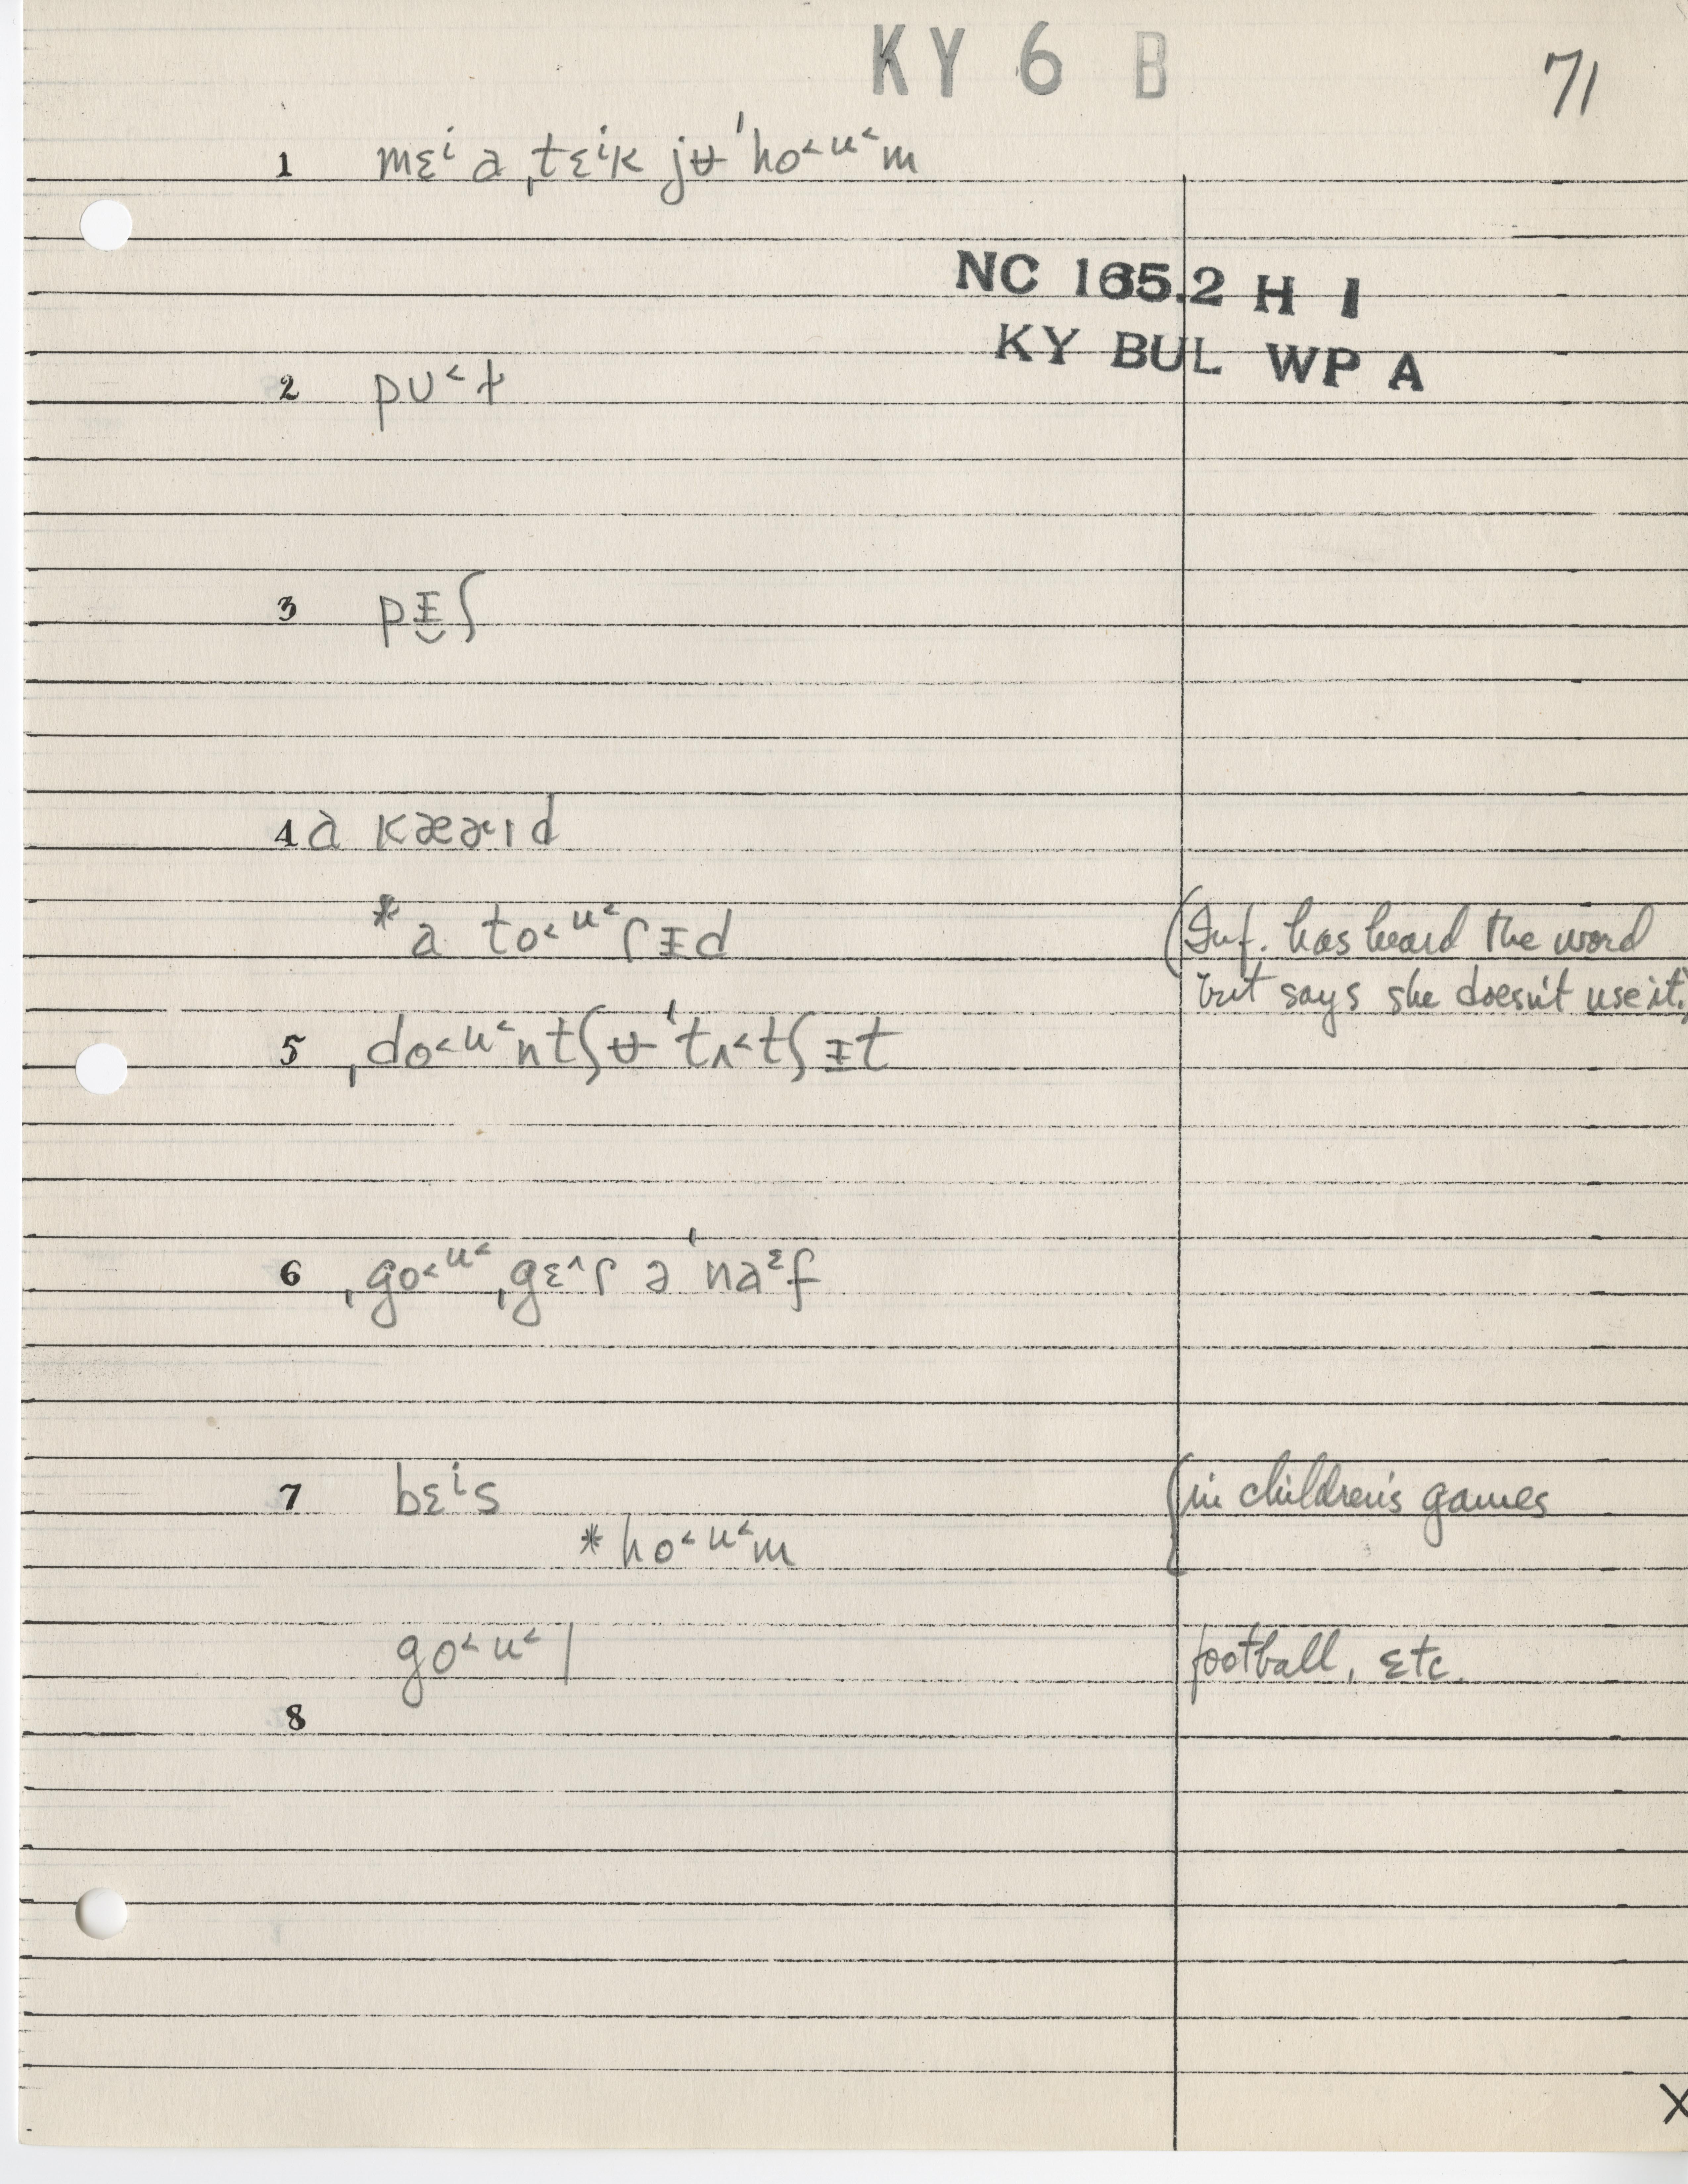 KY 6 B
71
1 mɛⁱ a ˌtɛⁱk jʉ ˈho˂ᵘ˂m
NC 165.2 H I
KY BUL WP A
2 pʊ˂ɫ
3 pᵻ̮ʃ
4 a kæɚɪd
*a to˂ᵘ˂ɾᵻd (Inf. has heard the word
but says she doesn't use it.)
5 ˌdo˂ᵘ˂ntʃʉ ˈtʌ˂tʃᵻt
6 ˌgo˂ᵘ˂ ˌgɛ˄ɾ ə ˈnaᵋf
7 bɛⁱs (in children's games
*ho˂ᵘ˂m
go˂ᵘ˂l football, etc.
8
X